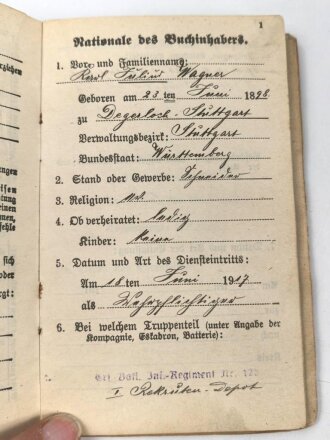 1
Nationale des Buchinhabers.
1. Vor- und Familienname:
Karl Julius Wagner
Geboren am 23 ten Juni 1898
zu Degerloch-Stuttgart
Verwaltungsbezirk: Stuttgart
Bundesstaat: Württemberg
2. Stand oder Gewerbe: Schneider
3. Religion: ev.
4. Ob verheiratet: ledig
Kinder: keine
5. Datum und Art des Diensteintritts:
Am 18 ten Juni 1917
als Wehrpflichtiger
6. Bei welchem Truppenteil (unter Angabe der
Kompagnie, Eskadron, Batterie):
Ers. Batl. Inf.-Regiment Nr. 125
I Rekruten-Depot